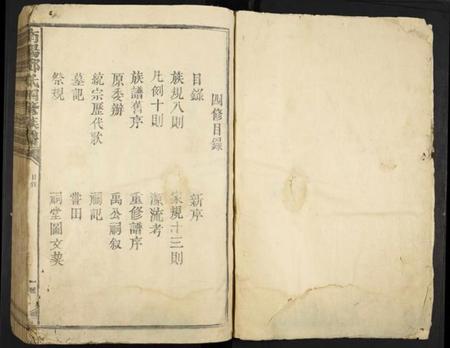 四修目錄
目錄 新序
族規八則 家規十三則
凡例十則 源流考
族譜舊序 重修譜序
原委辦 禹公嗣叙
統宗歷代歌 嗣記
墓記 嘗田
祭規 祠堂圖文契
目錄